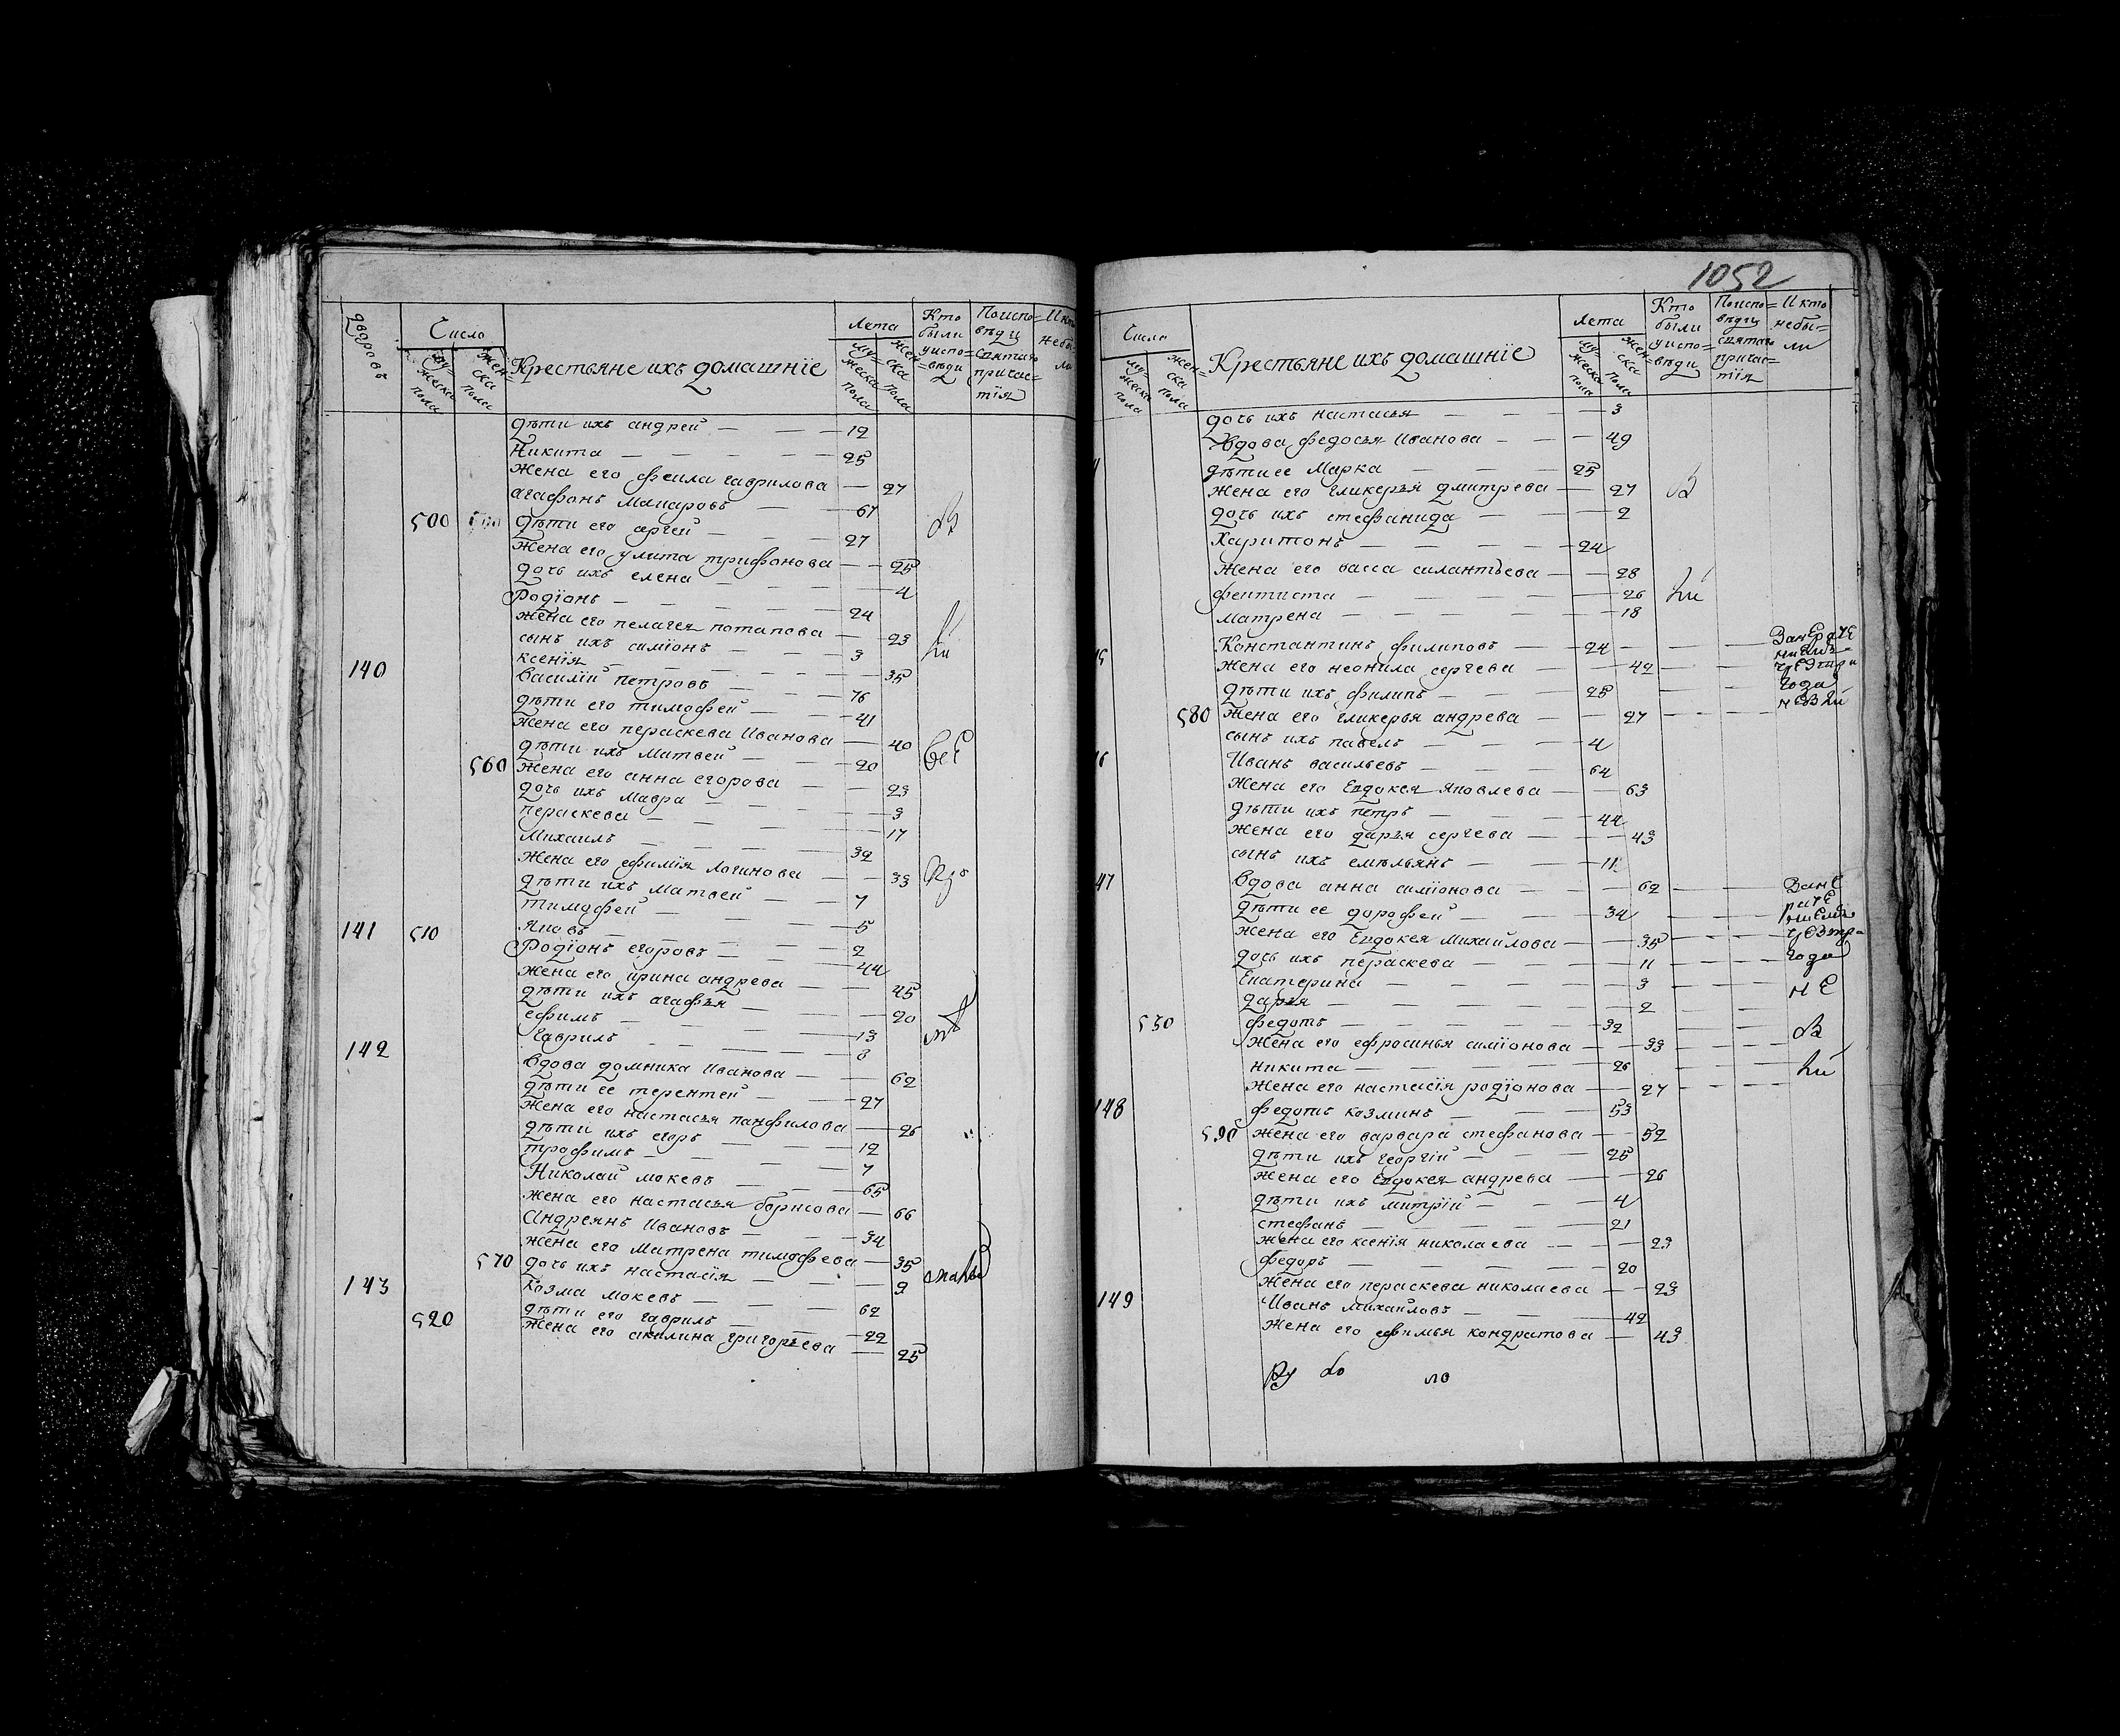 дворовъ
Число
мужеска пола
женска пола
Крестьяне ихъ домашнїе
Лета
мужеска пола
женска пола
Кто были уиспо=веди
Поиспо=веди святаго причас=тїя
И кто небы=ли
дѣти ихъ андрей — — — 12
Никита — — — — — 25
жена его феила гаврилова — 27
агафонъ макаровъ — — 61
500 дѣти его сергей — — — 27
жена его улита трифонова — — 25
дочь ихъ елена — — 4
Родїонъ — — — — — 24
жена его пелагея потапова — 23
сынъ ихъ симїонъ — — — 3
140 ксенїя — — — — — 35
василїй петровъ — — — 76
дѣти его тимофей — — — 41
жена его пераскева Иванова — 40
дѣти ихъ Матвей — — — 20
560 жена его анна егорова — — 23
дочь ихъ мавра — — — 3
пераскева — — — — 17
Михаилъ — — — — 32
жена его ефимїя логинова — — 33
дѣти ихъ матвей — — 7
тимофей — — — — 5
141 510 Яковъ — — — — 2
Родїонъ егоровъ — — — 44
жена его ирина андрева — — 45
дѣти ихъ агафья — — — 20
ефимъ — — — — 13
142 гаврилъ — — — — 8
вдова домника Иванова — — 62
дѣти ее терентей — — — 27
жена его настасья панфилова — 26
дѣти ихъ егоръ — — — 12
трофимъ — — — — 7
Николай мокевъ — — — 65
жена его настасья борисова — 66
Андреянъ Ивановъ — — — 34
жена его Матрена тимофева — 35
570 дочь ихъ настасїя — — — 9
143 Козма мокевъ — — — 62
520 дѣти его гаврилъ — — — 22
жена его акилина григорьева — 25
1052
Число
мужеска пола
женска пола
Крестьяне ихъ домашнїе
Лета
мужеска пола
женска пола
Кто были уиспо=веди
Поиспо=веди святаго причас=тїя
И кто небы=ли
дочь ихъ настасья — — — 3
вдова федосья Иванова — — — 49
дѣти ее Марка — — — 25
жена его гликерья дмитрева — 27
дочь ихъ стефанида — — — 2
Харитонъ — — — — — 24
жена его васса силантьева — — 28
фектиста — — — — — 26
матрена — — — — — 18
Константинъ филиповъ — — 24
жена его неонила сергева — — 42
дѣти ихъ филипъ — — — 25
580 жена его гликерья андрева — — 27
сынъ ихъ павелъ — — — 4
Иванъ васильевъ — — — 64
жена его Евдокея Яковлева — — 63
дѣти ихъ петръ — — — 44
жена его дарья сергева — — 43
сынъ ихъ емельянъ — — — 11
47 вдова анна симїонова — — — 62
дѣти ее дорофей — — — 34
жена его Евдокея Михайлова — — 35
дочь ихъ пераскева — — — 11
Екатерина — — — — — 3
дарья — — — — — 2
530 федотъ — — — — — 32
жена его ефросинья симїонова — — 33
никита — — — — — 26
жена его настасїя родїонова — — 27
148 федотъ козминъ — — — 53
590 жена его варвара стефанова — — 52
дѣти ихъ георгїй — — — 25
жена его Евдокея андрева — — 26
дѣти ихъ митрїй — — — 4
стефанъ — — — — — 21
жена его ксенїя николаева — — 23
федоръ — — — — — 20
жена его пераскева николаева — — 23
149 Иванъ михайловъ — — — 42
жена его ефимья кондратова — 43